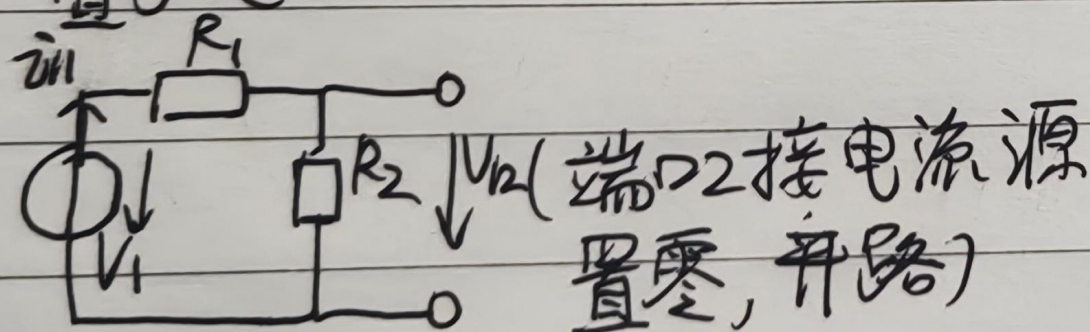 置
i11
R1
R2
V1
V12(端口2接电流源
置零,开路)